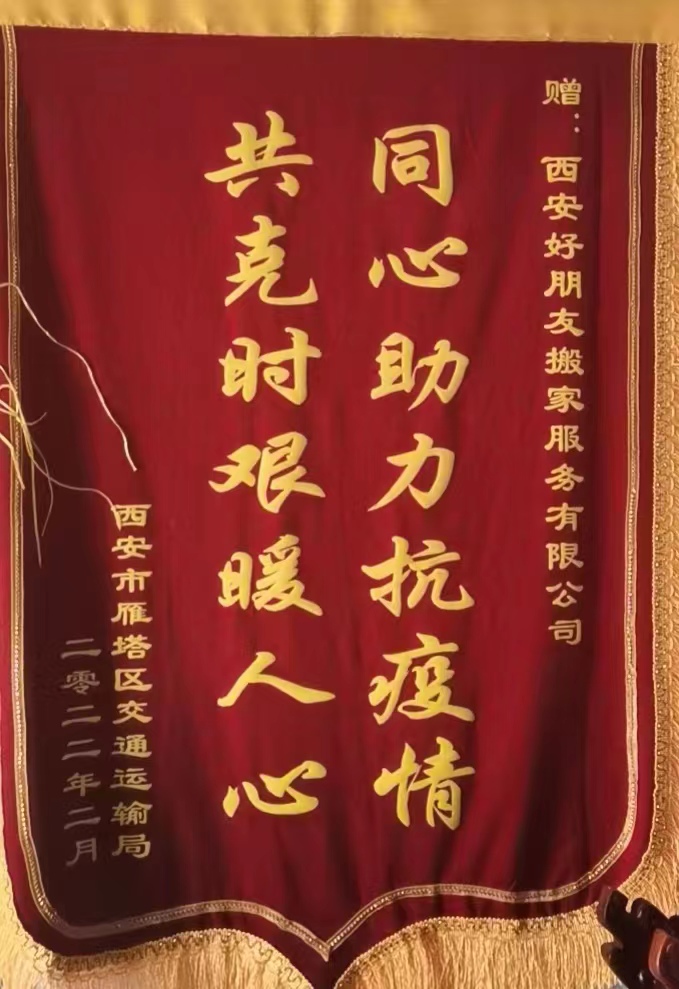 赠：西安好朋友搬家服务有限公司
同心助力抗疫情
共克时艰暖人心
西安市雁塔区交通运输局
二零二二年二月